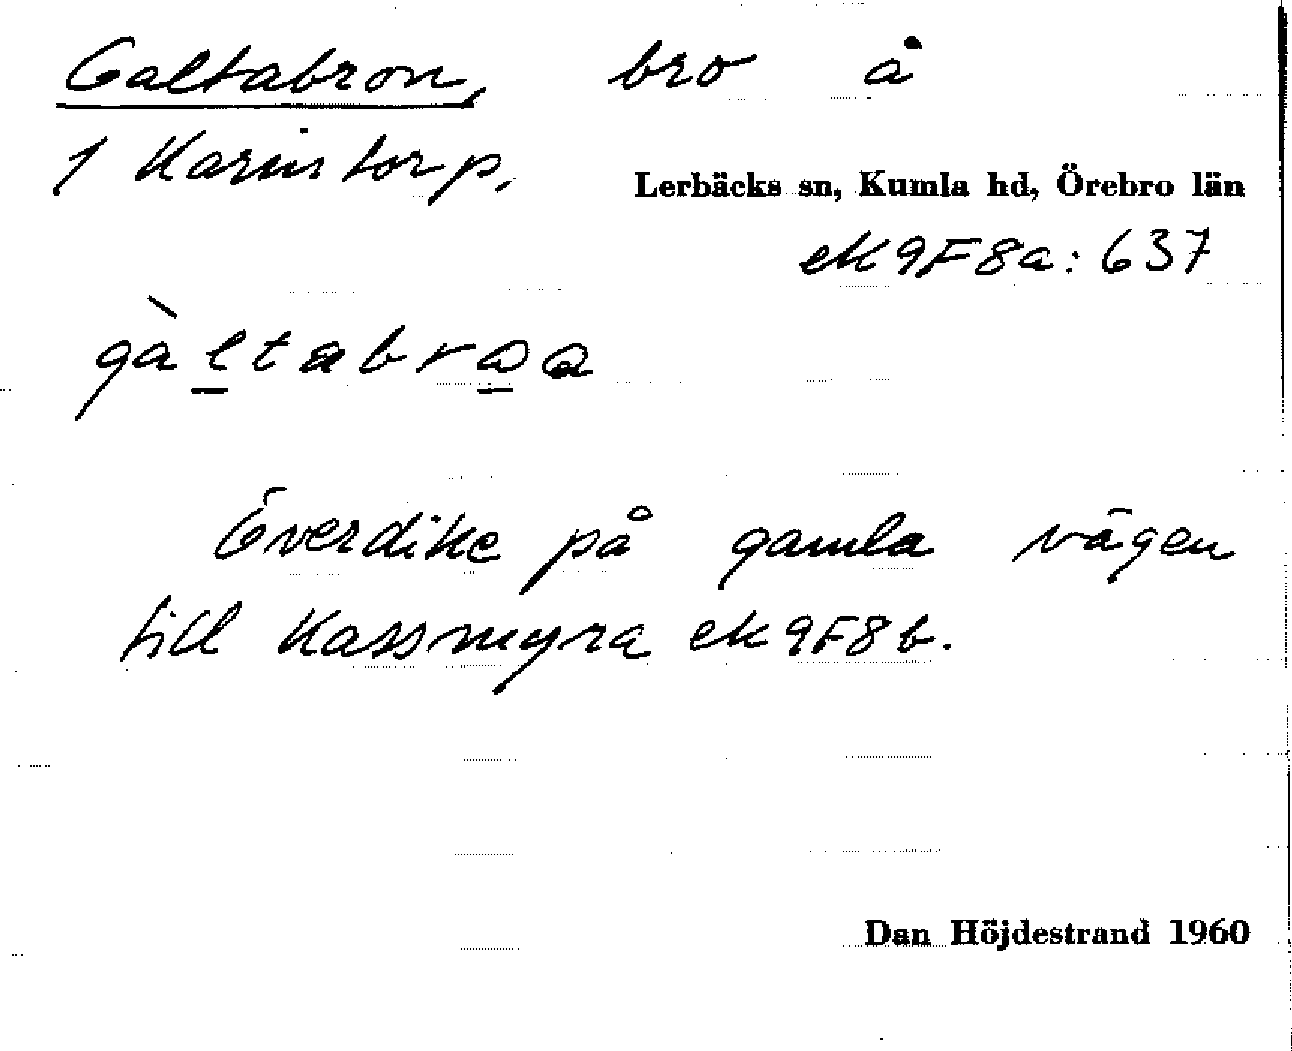 Galtabron, bro å
1 Karinstorp.
Lerbäcks sn, Kumla hd, Örebro län
ek 9F8a:637
gàltabroa
Överdike på gamla vägen
till Kassmyra ek 9F8b.
Dan Höjdestrand 1960